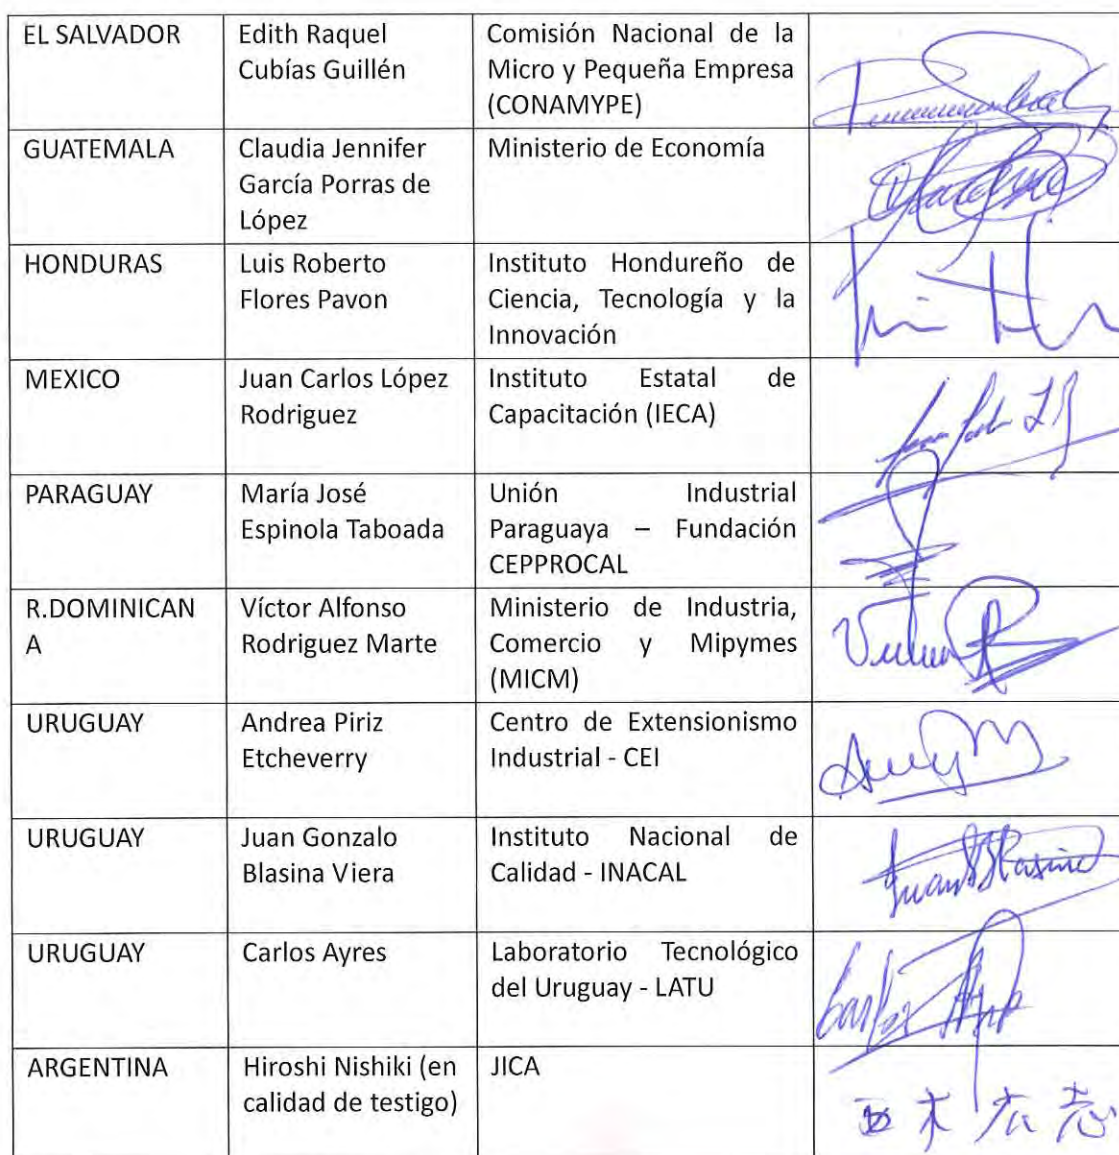 EL SALVADOR
Edith Raquel
Cubías Guillén
Comisión Nacional de la
Micro y Pequeña Empresa
(CONAMYPE)
GUATEMALA
Claudia Jennifer
García Porras de
López
Ministerio de Economía
HONDURAS
Luis Roberto
Flores Pavon
Instituto Hondureño de
Ciencia, Tecnología y la
Innovación
MEXICO
Juan Carlos López
Rodriguez
Instituto Estatal de
Capacitación (IECA)
PARAGUAY
María José
Espinola Taboada
Unión Industrial
Paraguaya – Fundación
CEPPROCAL
R.DOMINICAN
A
Víctor Alfonso
Rodriguez Marte
Ministerio de Industria,
Comercio y Mipymes
(MICM)
URUGUAY
Andrea Piriz
Etcheverry
Centro de Extensionismo
Industrial - CEI
URUGUAY
Juan Gonzalo
Blasina Viera
Instituto Nacional de
Calidad - INACAL
URUGUAY
Carlos Ayres
Laboratorio Tecnológico
del Uruguay - LATU
ARGENTINA
Hiroshi Nishiki (en
calidad de testigo)
JICA